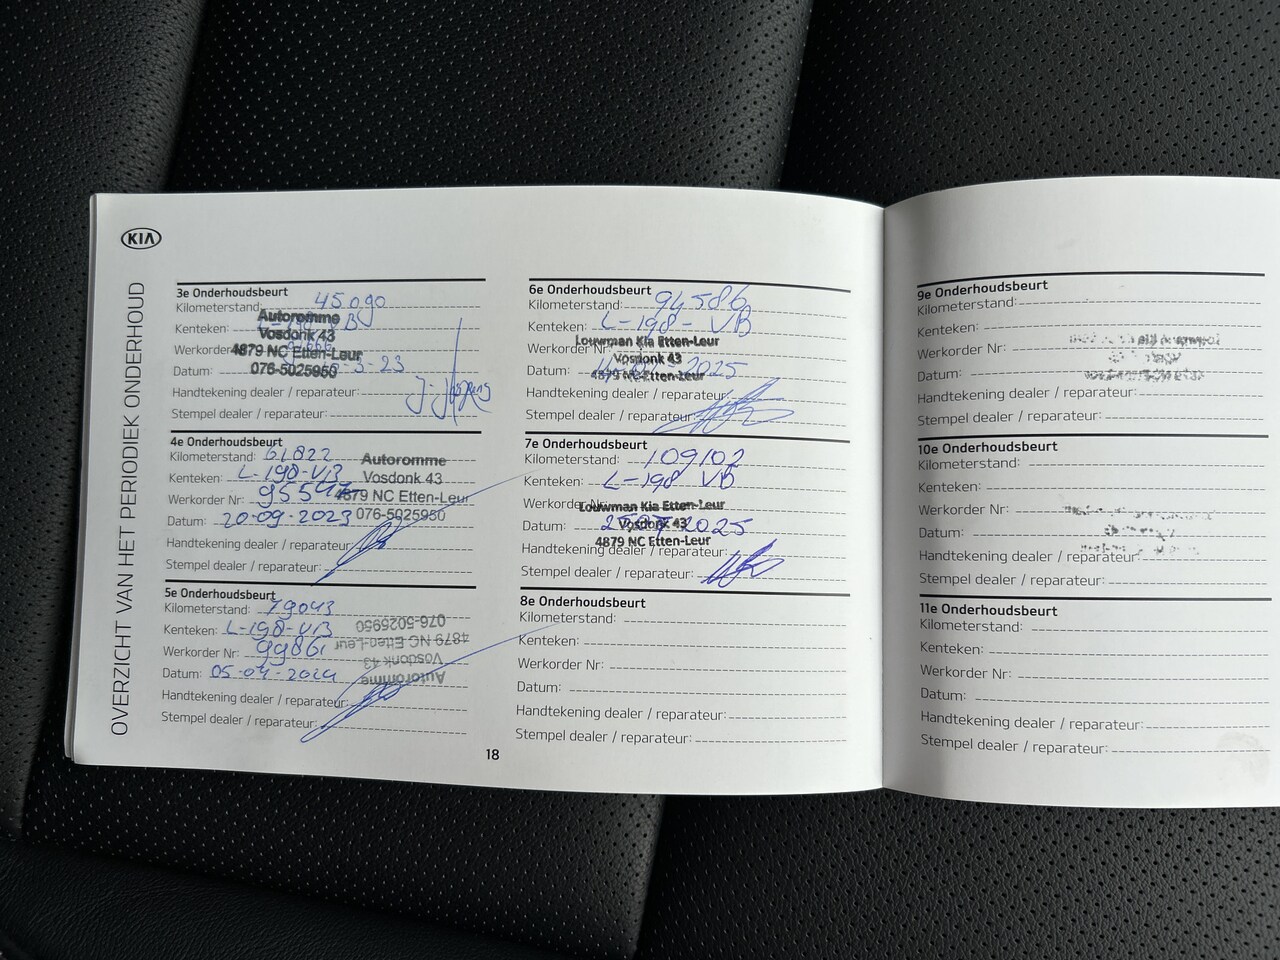 KIA
OVERZICHT VAN HET PERIODIEK ONDERHOUD
3e Onderhoudsbeurt
Kilometerstand: 45090
Kenteken:
Autoromme
Vosdonk 43
Werkorder
4879 NC Etten-Leur
Datum: 3-23
076-5025950
Handtekening dealer / reparateur:
Stempel dealer / reparateur:
4e Onderhoudsbeurt
Kilometerstand: 61822
Autoromme
Kenteken: L-198-VB
Vosdonk 43
Werkorder Nr:
4879 NC Etten-Leur
Datum: 20-09-2023
076-5025950
Handtekening dealer / reparateur:
Stempel dealer / reparateur:
5e Onderhoudsbeurt
Kilometerstand: 79043
076-5025950
Kenteken: L-198-VB
4879 NC Etten-Leur
Werkorder Nr: 99861
Vosdonk 43
Datum: 05-04-2024
Autoromme
Handtekening dealer / reparateur:
Stempel dealer / reparateur:
18
6e Onderhoudsbeurt
Kilometerstand: 94586
Kenteken: L-198-VB
Louwman Kia Etten-Leur
Werkorder Nr:
Vosdonk 43
Datum: 2025
4879 NC Etten-Leur
Handtekening dealer / reparateur:
Stempel dealer / reparateur:
7e Onderhoudsbeurt
Kilometerstand: 109102
Kenteken: L-198 VB
Werkorder Nr:
Louwman Kia Etten-Leur
Datum: 2025
Vosdonk 43
4879 NC Etten-Leur
Handtekening dealer / reparateur:
Stempel dealer / reparateur:
8e Onderhoudsbeurt
Kilometerstand:
Kenteken:
Werkorder Nr:
Datum:
Handtekening dealer / reparateur:
Stempel dealer / reparateur:
9e Onderhoudsbeurt
Kilometerstand:
Kenteken:
Werkorder Nr:
Datum:
Handtekening dealer / reparateur:
Stempel dealer / reparateur:
10e Onderhoudsbeurt
Kilometerstand:
Kenteken:
Werkorder Nr:
Datum:
Handtekening dealer / reparateur:
Stempel dealer / reparateur:
11e Onderhoudsbeurt
Kilometerstand:
Kenteken:
Werkorder Nr:
Datum:
Handtekening dealer / reparateur:
Stempel dealer / reparateur: